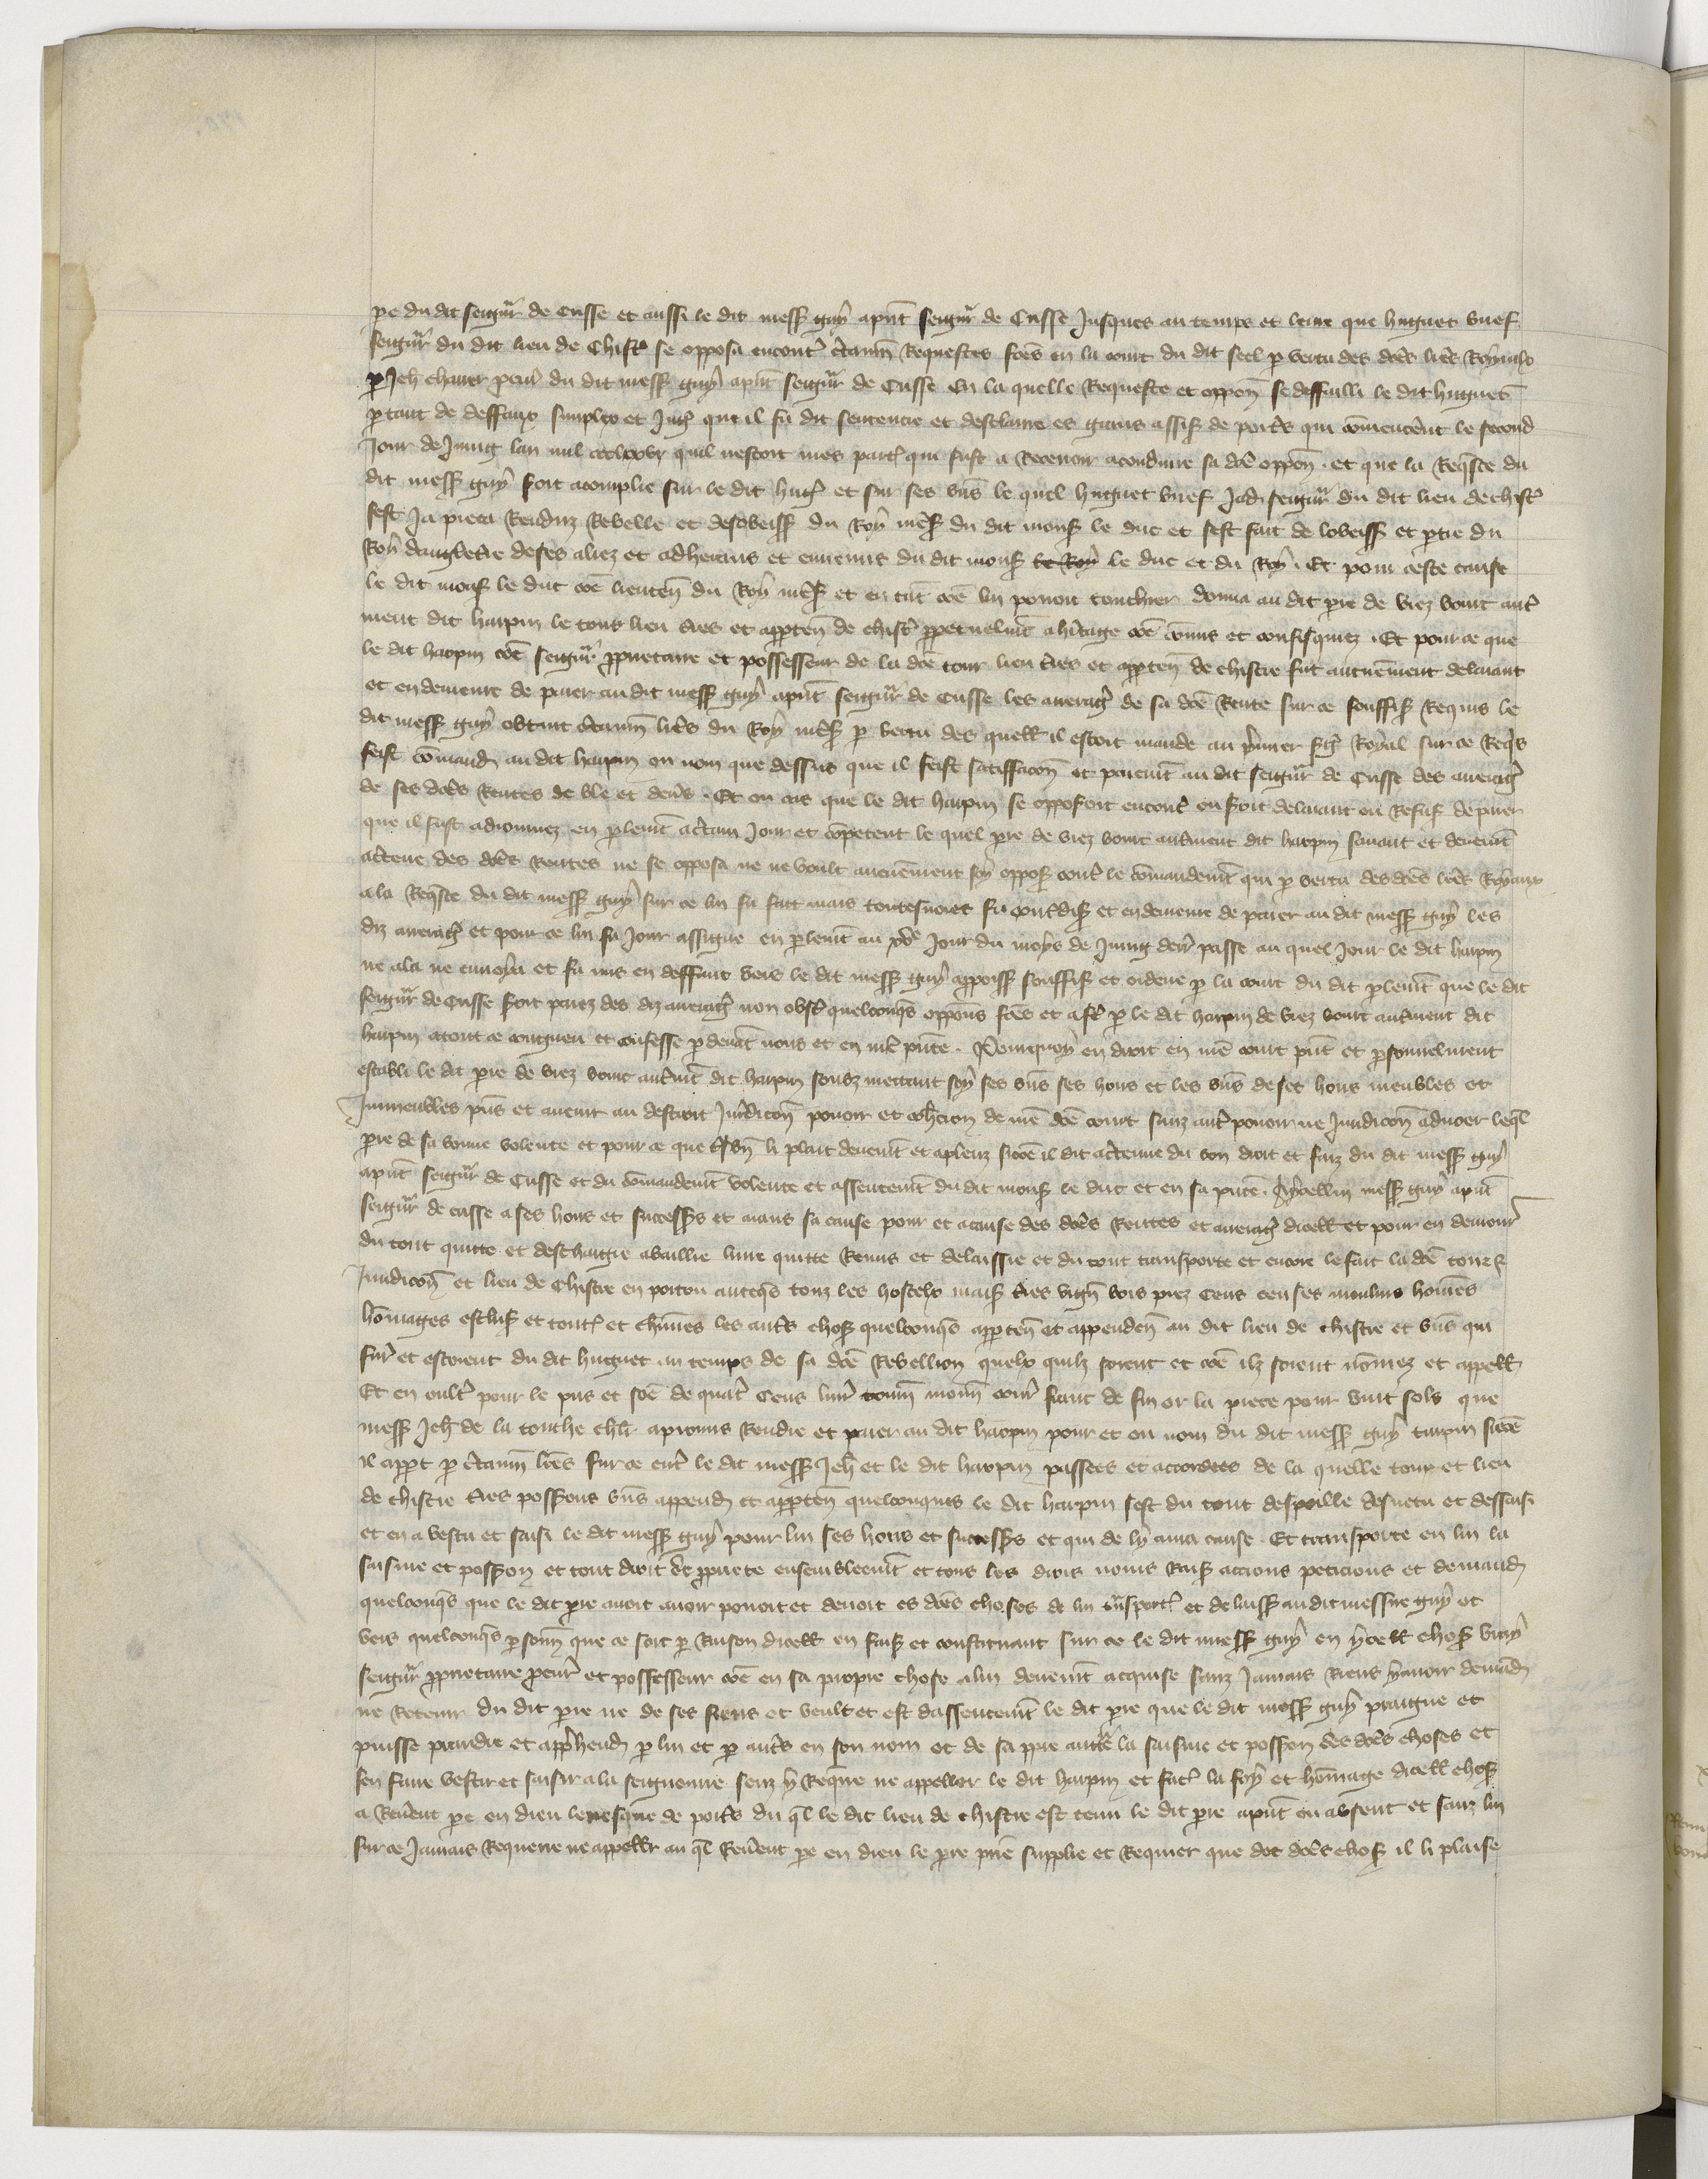 pe du dit seigneur de Crisse et aussi le dit mess guy apñt seigñr de Crisse Jusques au temps et leure que huguet vnef
seigñr du dit lieu de Chist se opposa encontr ctaines Requestes fces en la court du dit seel p vertu des dces lres Royaulx
p Jeh chauer pcur du dit mess guy apñt seigñr de Crisse En la quelle Requeste et oppon se deffailli le dit huguet
ptant de deffaux simples et Jug que il fu dit sentencie et desclaire es grans assis de poitrs qui comencerent le second
Jour de Juing lan mil ccclxxvi quil nestoit mes part qui fust a Recevoir aconduire sa dce oppon . et que la Reqste du
dit mess guy soit acomplie sur le dit hug et sur ses bns le quel huguet vnef Jadis seigñr du dit lieu de chist
sest Ja pieca Renduz Rebelle et desobeiss du Roy nres du dit mons le duc et sest fait de lobeiss et ptie du
Roy dangleterre de ses aliez et adherens et ennemis du dit mons le Roy le duc et du Roy . Et pour ceste cause
le dit mons le duc coe lieuten du Roy nres et en tñt coe lui pouoit touchier donna au dit pre de viez bourt autr
ment dit harpin le tour lieu tres et apparten de chist ppetuelmt a hitage coe comis et confisquiez . Et pour ce que
le dit harpin coe seigñr pprietaire et possesseur de la dce tour lieu tres et apparten de chistre fut aucunement delaiant
et en demeure de paier au dit mess guy apñt seigñr de Crisse les arrerag de sa dce Rente sur ce souffis Requis le
dit mess guy obtint ctaines lres du Roy nres p vertu des quell il estoit mande au pmier sg Royal sur ce Reqs
feist comand au dit harpin ou nom que dessus que il feist satiffacon et paiemt au dit seigñr de Crisse des arrerag
de ses dces Rentes de ble et dens . Et en cas que le dit harpin se opposeroit encontr ou seroit delaiant ou Refus de paier
que il fust adiournez en plemt a ctain Jour et competent le quel pre de viez bourt autrement dit harpin sauant et deuemt
actene des dces Rentes ne se opposa ne ne voult aucunement soy oppos contr le comandemt qui p vertu des dces lres Royaux
a la Reqste du dit mess guy sur ce lui fu fait mais toutesuoies fu contredis et en demeure de paier au dit mess guy les
diz arrerag et pour ce lui fu Jour assigne en plemt au xve Jour du moys de Juing derr passe au quel Jour le dit harpin
ne ala ne enuoya et fu mis en deffaut vers le dit mess guy apparoiss souffis et ordene p la court du dit plemt que le dit
seigñr de Crisse soit paiez des diz arrerag non obst quelconqs oppons fces et a fe p le dit harpin de viez bourt autrement dit
harpin atout ce congneu et confesse p deuat nous et en nre pnce . Pourquoy en droit en nre court pnt et psonnelment
establi le dit pre de viez bourt autrmt dit harpin soubz mettant soy ses bns ses hoirs et les bns de ses hoirs meubles et
Jmmeubles pns et auenir au destroit Jurdicon pouoir et cohercion de nre dce court sanz autr pouoir ne Jurdicon aduoer leql
pre de sa bonne volente et pour ce que tsbn li plait deuemt et aplenz sicoe il dit acertene du bon droit et faiz du dit mess guy
apñt seigñr de Crisse et du comandemt volente et assentemt du dit mons le duc et en sa pnce . Aycellui mess guy apñt
seigñr de crisse a ses hoirs et successrs et aians sa cause pour et acause des dces Rentes et arrerag dicell et pour en demour
du tout quitte et deschargie a baillie livre quitte Renus et delaissie et du tout transporte et encore le fait la dce tour
Jurdicon et lieu de Chistre en poitou auecqs touz les hostelx mais tres vign bois prez Cens censes moulins homes
homages esclus et tout et chunes les autrs chos quelconqs apparten et appenden au dit lieu de chistre et bns qui
fur et estoient du dit huguet au temps de sa dce Rebellion quelx quilz soient et coe ilz soient nomez et appell
Et en oultr pour le pris et soe de quatr Cens livr tourn monn cour franc de fin or la piece pour vint sols que
mess Jeh de la touche chlr a promis Rendre et paier au dit harpin pour et ou nom du dit mess guy turpin sicoe
il appt p ctaines lres sur ce entr le dit mess Jeh et le dit harpin passees et accordees de la quelle tour et lieu
de chistre tres possons bns append et apparten quelconques le dit harpin sest du tout despoille desuetu et dessaisi
et en a vestu et saisi le dit mess guy pour lui ses hoirs et successrs et qui de ly aura cause . Et transporte en lui la
saisine et posson et tout droit de pprete ensemblemt et tous les drois noms Rais accions peticions et demand
quelconqs que le dit pre auoit auoir pouoit et deuoit es dces choses et lui transport et delaiss au dit messire guy et
vers quelconqs psonn que ce soit p Raison dicell en fais et constituant sur ce le dit mess guy en ycell chos vray
seigñr pprietaire pcur et possesseur coe en sa propre chose a lui deuemt acquise sanz Jamais Riens y auoir demad
ne Retenir du dit pre ne de ses siens et veult et est dassentemt le dit pre que le dit mess guy praigne et
puisse prendre et apprehend p lui et p autrs en son nom et de sa ppre autte la saisine et posson des dces choses et
sen faire vestir et saisir a la seigneurie senz y Reqre ne appeller le dit harpin et fac la foy et homage dicell chos
a Reuent pe en dieu leuesque de poitrs du ql le dit lieu de chistre est tenu le dit pre apñt ou absent et sanz lui
sur ce Jamais Requerre ne appeller au ql Reuent pe en dieu le pre pñce supplie et Requier que des dces chos il li plaise